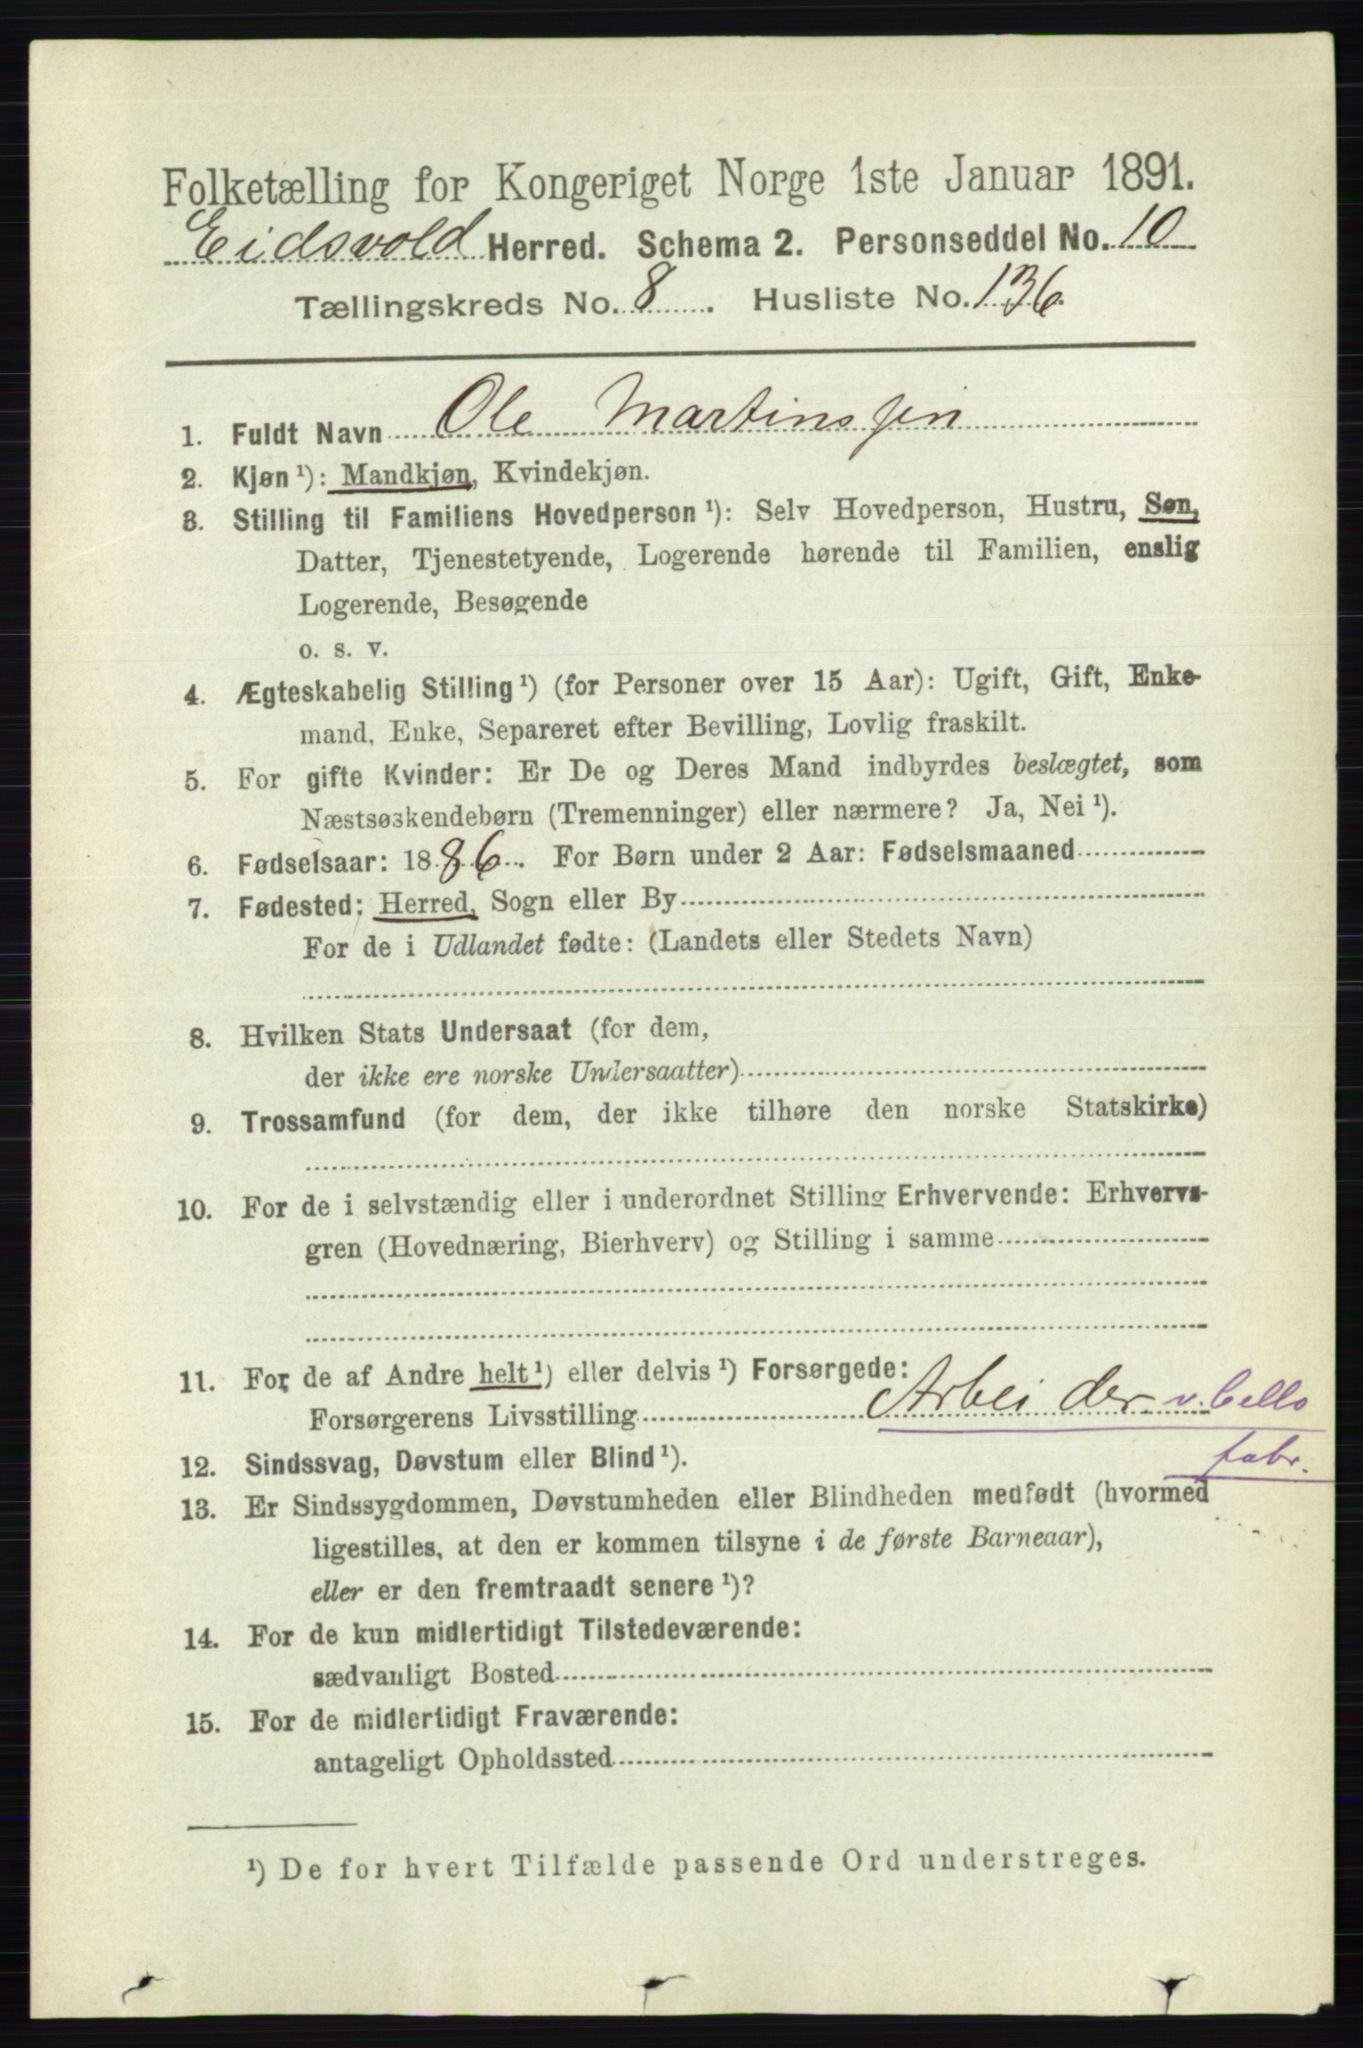 Folketælling for Kongeriget Norge 1ste Januar 1891.
Eidsvold Herred. Schema 2. Personseddel No. 10
Tællingskreds No. 8. Husliste No. 136
1. Fuldt Navn Ole Martinssen
2. Kjøn¹): Mandkjøn, Kvindekjøn.
3. Stilling til Familiens Hovedperson¹): Selv Hovedperson, Hustru, Søn,
Datter, Tjenestetyende, Logerende hørende til Familien, enslig
Logerende, Besøgende
o. s. v.
4. Ægteskabelig Stilling¹) (for Personer over 15 Aar): Ugift, Gift, Enke-
mand, Enke, Separeret efter Bevilling, Lovlig fraskilt.
5. For gifte Kvinder: Er De og Deres Mand indbyrdes beslægtet, som
Næstsøskendebørn (Tremenninger) eller nærmere? Ja, Nei¹).
6. Fødselsaar: 1886. For Børn under 2 Aar: Fødselsmaaned
7. Fødested: Herred, Sogn eller By
For de i Udlandet fødte: (Landets eller Stedets Navn)
8. Hvilken Stats Undersaat (for dem,
der ikke ere norske Undersaatter)
9. Trossamfund (for dem, der ikke tilhøre den norske Statskirke)
10. For de i selvstændig eller i underordnet Stilling Erhvervende: Erhvervs-
gren (Hovednæring, Bierhverv) og Stilling i samme
11. For de af Andre helt¹) eller delvis¹) Forsørgede:
Forsørgerens Livsstilling Arbeider v. Cello
fabr.
12. Sindssvag, Døvstum eller Blind¹).
13. Er Sindssygdommen, Døvstumheden eller Blindheden medfødt (hvormed
ligestilles, at den er kommen tilsyne i de første Barneaar),
eller er den fremtraadt senere¹)?
14. For de kun midlertidigt Tilstedeværende:
sædvanligt Bosted
15. For de midlertidigt Fraværende:
antageligt Opholdssted
¹) De for hvert Tilfælde passende Ord understreges.